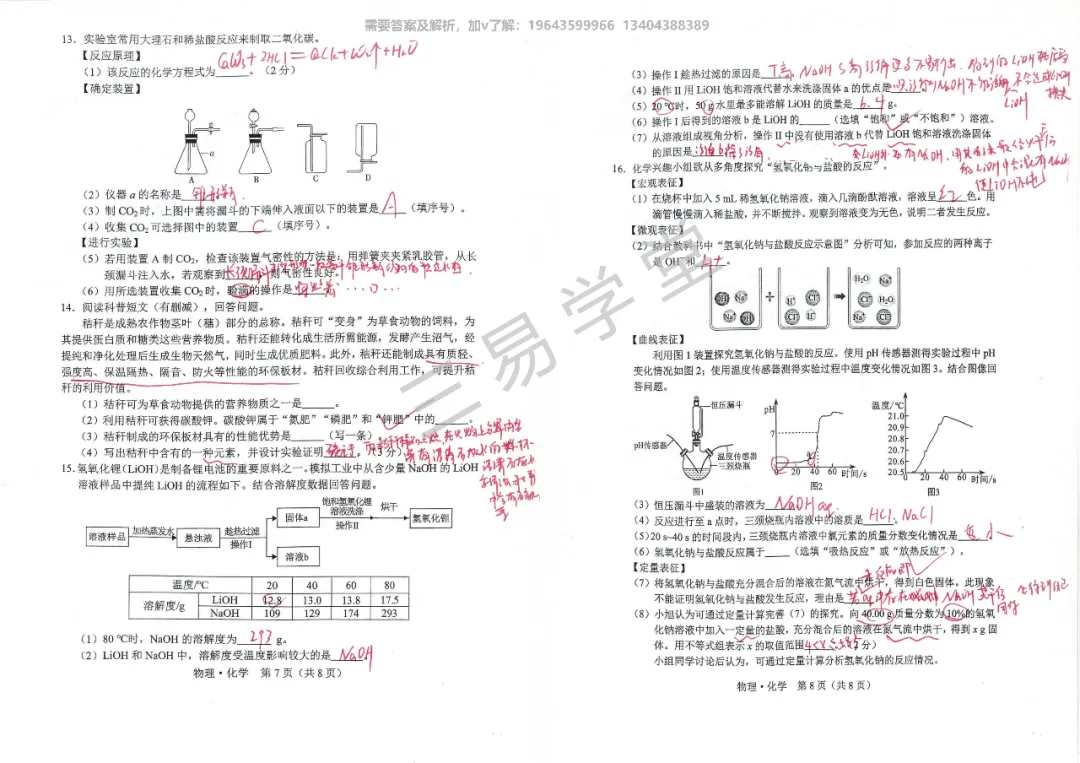 需要答案及解析,加v了解:19643599966 13404388389
13. 实验室常用大理石和稀盐酸反应来制取二氧化碳。
【反应原理】
(1)该反应的化学方程式为______。(2分)
【确定装置】
a
A B C D
(2)仪器 a 的名称是
(3)制 CO₂时,上图中需将漏斗的下端伸入液面以下的装置是 A (填序号)。
(4)收集 CO₂可选择图中的装置 C (填序号)。
【进行实验】
(5)若用装置 A 制 CO₂,检查该装置气密性的方法是:用弹簧夹夹紧乳胶管,从长
颈漏斗注入水,若观察到 则气密性良好。
(6)用所选装置收集 CO₂时,验满的操作是
14. 阅读科普短文(有删减),回答问题。
秸秆是成熟农作物茎叶(穗)部分的总称。秸秆可“变身”为草食动物的饲料,为
其提供蛋白质和糖类这些营养物质。秸秆还能转化成生活所需能源,发酵产生沼气,经
提纯和净化处理后生成生物天然气,同时生成优质肥料。此外,秸秆还能制成具有质轻、
强度高、保温隔热、隔音、防火等性能的环保板材。秸秆回收综合利用工作,可提升秸
秆的利用价值。
(1)秸秆可为草食动物提供的营养物质之一是______。
(2)利用秸秆可获得碳酸钾。碳酸钾属于“氮肥”“磷肥”和“钾肥”中的
(3)秸秆制成的环保板材具有的性能优势是______(写一条)
(4)写出秸秆中含有的一种元素,并设计实验证明 。(3分)
15. 氢氧化锂(LiOH)是制备锂电池的重要原料之一。模拟工业中从含少量 NaOH 的 LiOH
溶液样品中提纯 LiOH 的流程如下。结合溶解度数据回答问题。
溶液样品 加热蒸发水 悬浊液 趁热过滤 操作Ⅰ 固体a 饱和氢氧化锂溶液洗涤 操作Ⅱ 烘干 氢氧化锂
溶液b
温度/℃ 20 40 60 80
溶解度/g LiOH 12.8 13.0 13.8 17.5
NaOH 109 129 174 293
(1)80 ℃时,NaOH 的溶解度为 293 g。
(2)LiOH 和 NaOH 中,溶解度受温度影响较大的是 NaOH
物理·化学 第 7 页(共 8 页)
(3)操作Ⅰ趁热过滤的原因是
(4)操作Ⅱ用 LiOH 饱和溶液代替水来洗涤固体 a 的优点是
(5)20 ℃时,50 g 水里最多能溶解 LiOH 的质量是 6.4 g。
(6)操作Ⅰ后得到的溶液 b 是 LiOH 的______(选填“饱和”或“不饱和”)溶液。
(7)从溶液组成视角分析,操作Ⅱ中没有使用溶液 b 代替 LiOH 饱和溶液洗涤固体
的原因是
16. 化学兴趣小组欲从多角度探究“氢氧化钠与盐酸的反应”。
【宏观表征】
(1)在烧杯中加入 5 mL 稀氢氧化钠溶液,滴入几滴酚酞溶液,溶液呈 红 色。用
滴管慢慢滴入稀盐酸,并不断搅拌。观察到溶液变为无色,说明二者发生反应。
【微观表征】
(2)结合教科书中“氢氧化钠与盐酸反应示意图”分析可知,参加反应的两种离子
是 OH⁻和 H⁺ 。
【曲线表征】
利用图 1 装置探究氢氧化钠与盐酸的反应。使用 pH 传感器测得实验过程中 pH
变化情况如图 2;使用温度传感器测得实验过程中温度变化情况如图 3。结合图像回
答问题。
恒压漏斗
pH传感器
温度传感器
三颈烧瓶
图1
pH
7
0 20 40 60 时间/s
图2
温度/℃
21.0
20.9
20.8
20.7
20.6
20.5
0 20 40 60 时间/s
图3
(3)恒压漏斗中盛装的溶液为 NaOH aq 。
(4)反应进行至 a 点时,三颈烧瓶内溶液中的溶质是 HCl、NaCl
(5)20 s~40 s 的时间段内,三颈烧瓶内溶液中氯元素的质量分数变化情况是 变小
(6)氢氧化钠与盐酸反应属于____(选填“吸热反应”或“放热反应”)。
【定量表征】
(7)将氢氧化钠与盐酸充分混合后的溶液在氮气流中烘干,得到白色固体。此现象
不能证明氢氧化钠与盐酸发生反应,理由是
(8)小旭认为可通过定量计算完善(7)的探究。向 40.00 g 质量分数为 10%的氢氧
化钠溶液中加入一定量的盐酸,充分混合后的溶液在氮气流中烘干,得到 x g 固
体。用不等式组表示 x 的取值范围 分)
小组同学讨论后认为,可通过定量计算分析氢氧化钠的反应情况。
物理·化学 第 8 页(共 8 页)
三易学堂